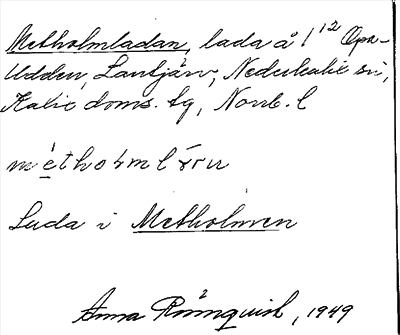 Metholmladan, lada å 1¹² Opa-
Udden, Lantjärv, Nederkalix sn,
Kalix doms. tg, Norrb. l
Lada i Metholmen
Anna Rönnquist, 1949